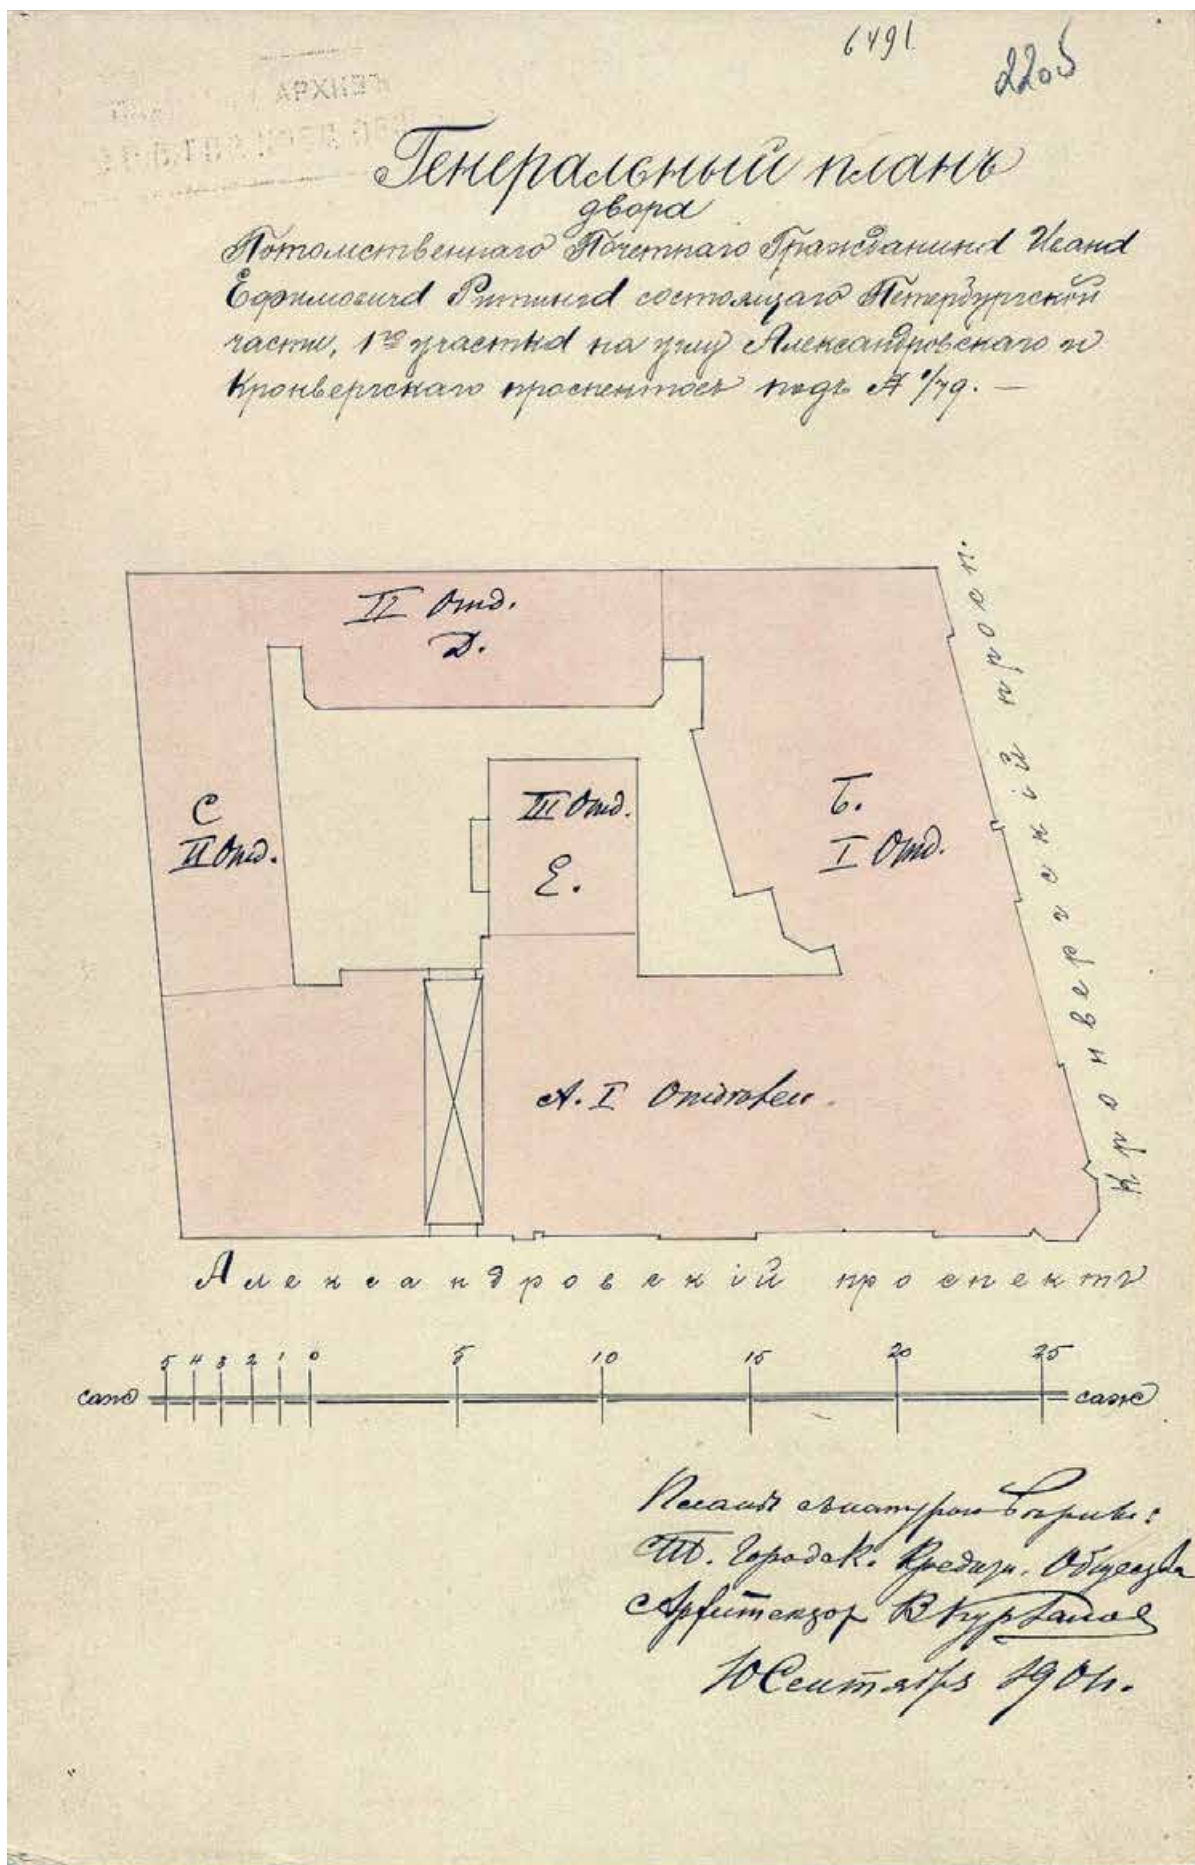 6491
2205
АРХИВЪ
Генеральный планъ
двора
Потомственнаго Почетнаго Гражданина Ивана
Ефимовича Ритинга состоящаго Петербургской
части, 1го участка на углу Александровскаго и
Кронверкскаго проспектовъ подъ №
II Отд.
D.
C
II Отд.
III Отд.
E.
Б.
I Отд.
А. I
Кронверкскій просп.
Александровскій проспектъ
5 4 3 2 1 0 5 10 15 20 25
саж саж
Планъ съ натурою вѣренъ:
Городск. Кредитн. Общества
Архитекторъ В Курбановъ
10 Сентября